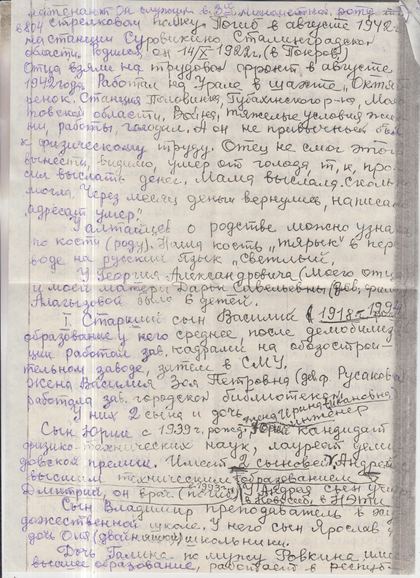 лейтенант. Он служил в 3й минометной роте
в 804 стрелковом полку. Погиб в августе 1942г
на станции Суровикино Сталинградской
области. Родился он 14/X 1922г. (в Покров)
Отца взяли на трудовой фронт в августе
1942года. Работал на Урале в шахте "Октя
ренок. Станция Половинка, Губахинского р-на, Моло
товской области. Война, тяжелые условия жиз
ни, работы, голодали. А он не привычный был
к физическому труду. Отец не смог этого
вынести. Видимо, умер от голода, т. к. про
сил выслать денег. Мама выслала. Сколько
могла. Через месяц деньги вернулись, написано
"адресат умер".
У алтайцев о родстве можно узнать
по кости (роду). Наша кость "тярык" в пере
воде на русский язык "Светлый".
У Георгия Александровича (моего отца
и моей матери Дарьи Савельевны (дев. фам.
Алагызовой было 6 детей.
I Старший сын Василий (1918г 1994
образование у него среднее, после демобилиза
ции работал зав. кадрами на
тельном заводе, затем в СМУ.
Жена Василия Зоя Петровна (дев. ф. Русакова
работала зав. городской библиотекой
У них 2 сына и дочь
жена Ирина Ивановна
инженер
Сын Юрий с 1939г. рожд. Юрий кандидат
физико-технических наук, лауреат
довской премии. Имеет 2 сыновей. Андрей
высшим техническим образованием
Дмитрий, он врач
У Андрея сын
Сын Владимир преподаватель в ху
дожественной школе. У него сын Ярослав и
дочь Оля (двойняшки) школьники.
Дочь Галина по мужу Говкина имеет
высшее образование, работает в